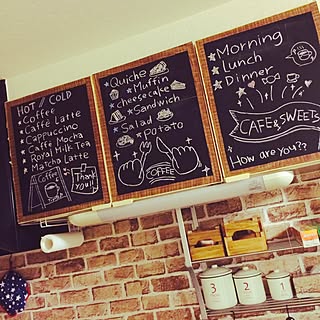 HOT // COLD
Coffee
Caffé Latte
Cappuccino
Caffe Mocha
Royal Milk Tea
Matcha Latte
Thank
You!!
Quiche
Muffin
cheesecake
Sandwich
Salad
Potato
COFFEE
Morning
Lunch
Dinner
CAFE & SWEETS
How are you??
3
2
1